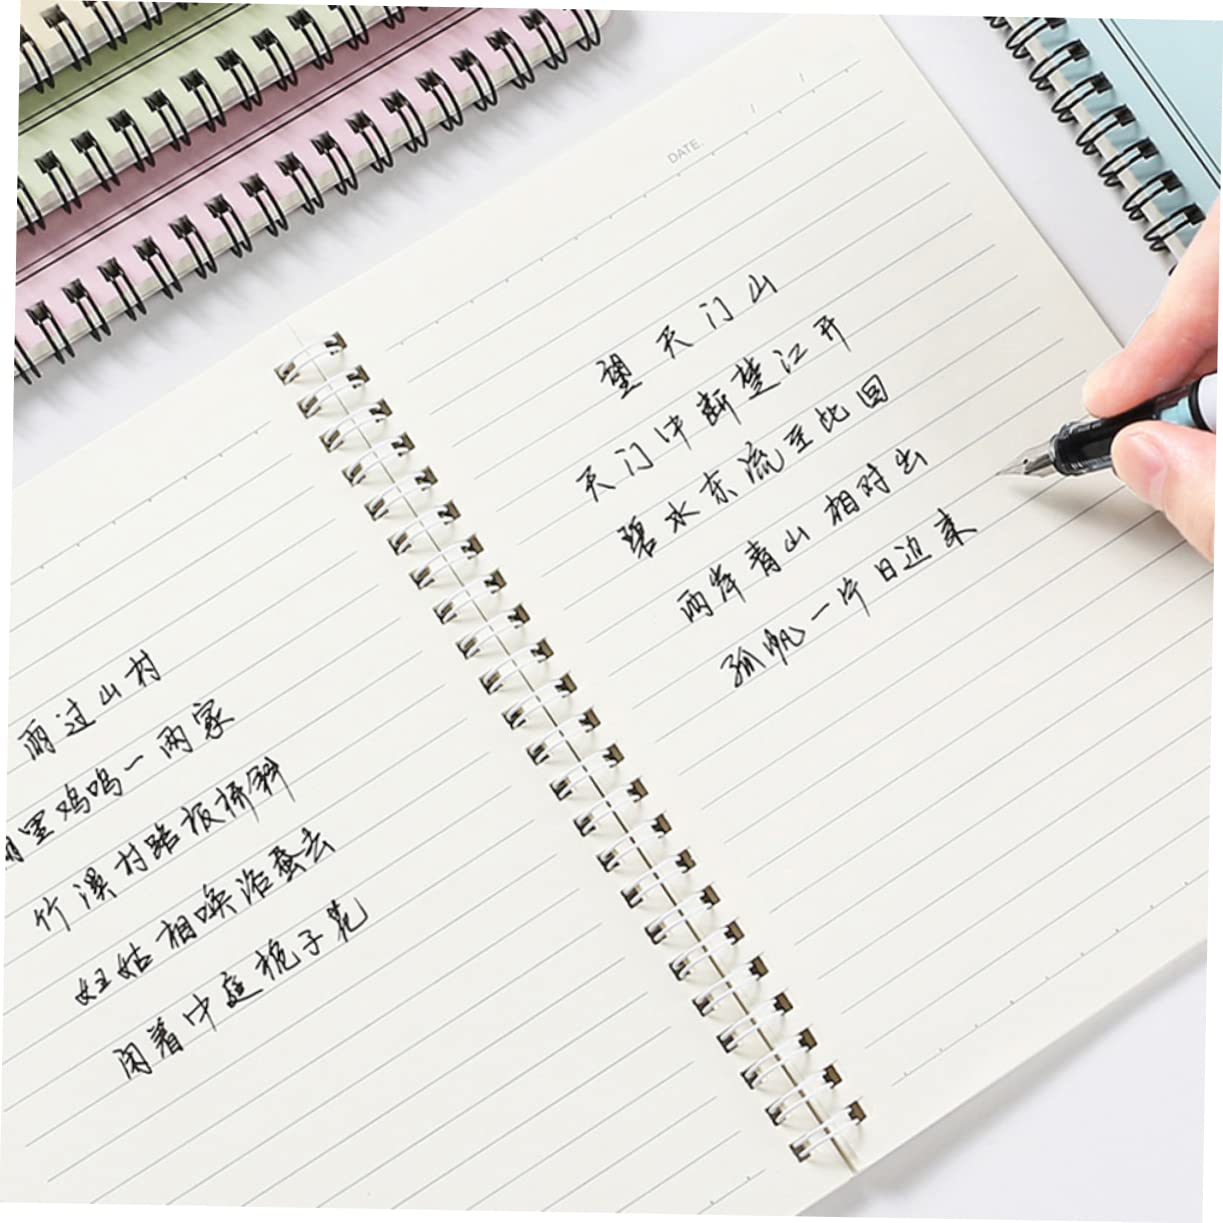 雨过山村
雨里鸡鸣一两家
竹溪村路板桥斜
妇姑相唤浴蚕去
闲着中庭栀子花
DATE. / /
望天门山
天门中断楚江开
碧水东流至此回
两岸青山相对出
孤帆一片日边来